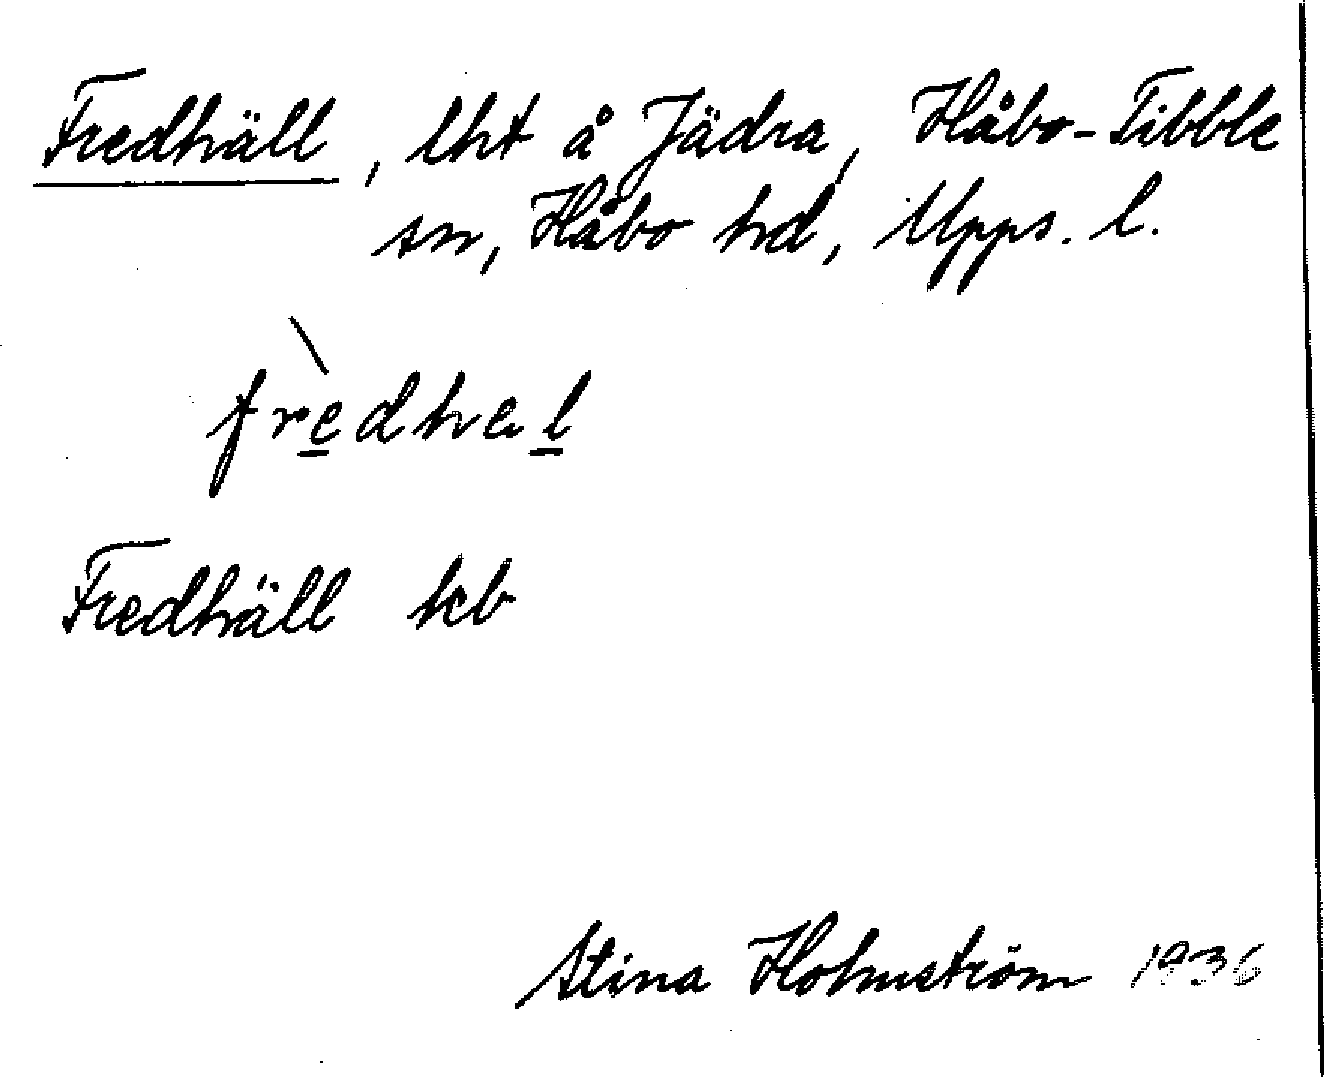 Fredhäll, lht å Jädra, Håbo-Tibble
sn, Håbo hd, Upps. l.
frèdhel
Fredhäll kb
Stina Holmström 1936